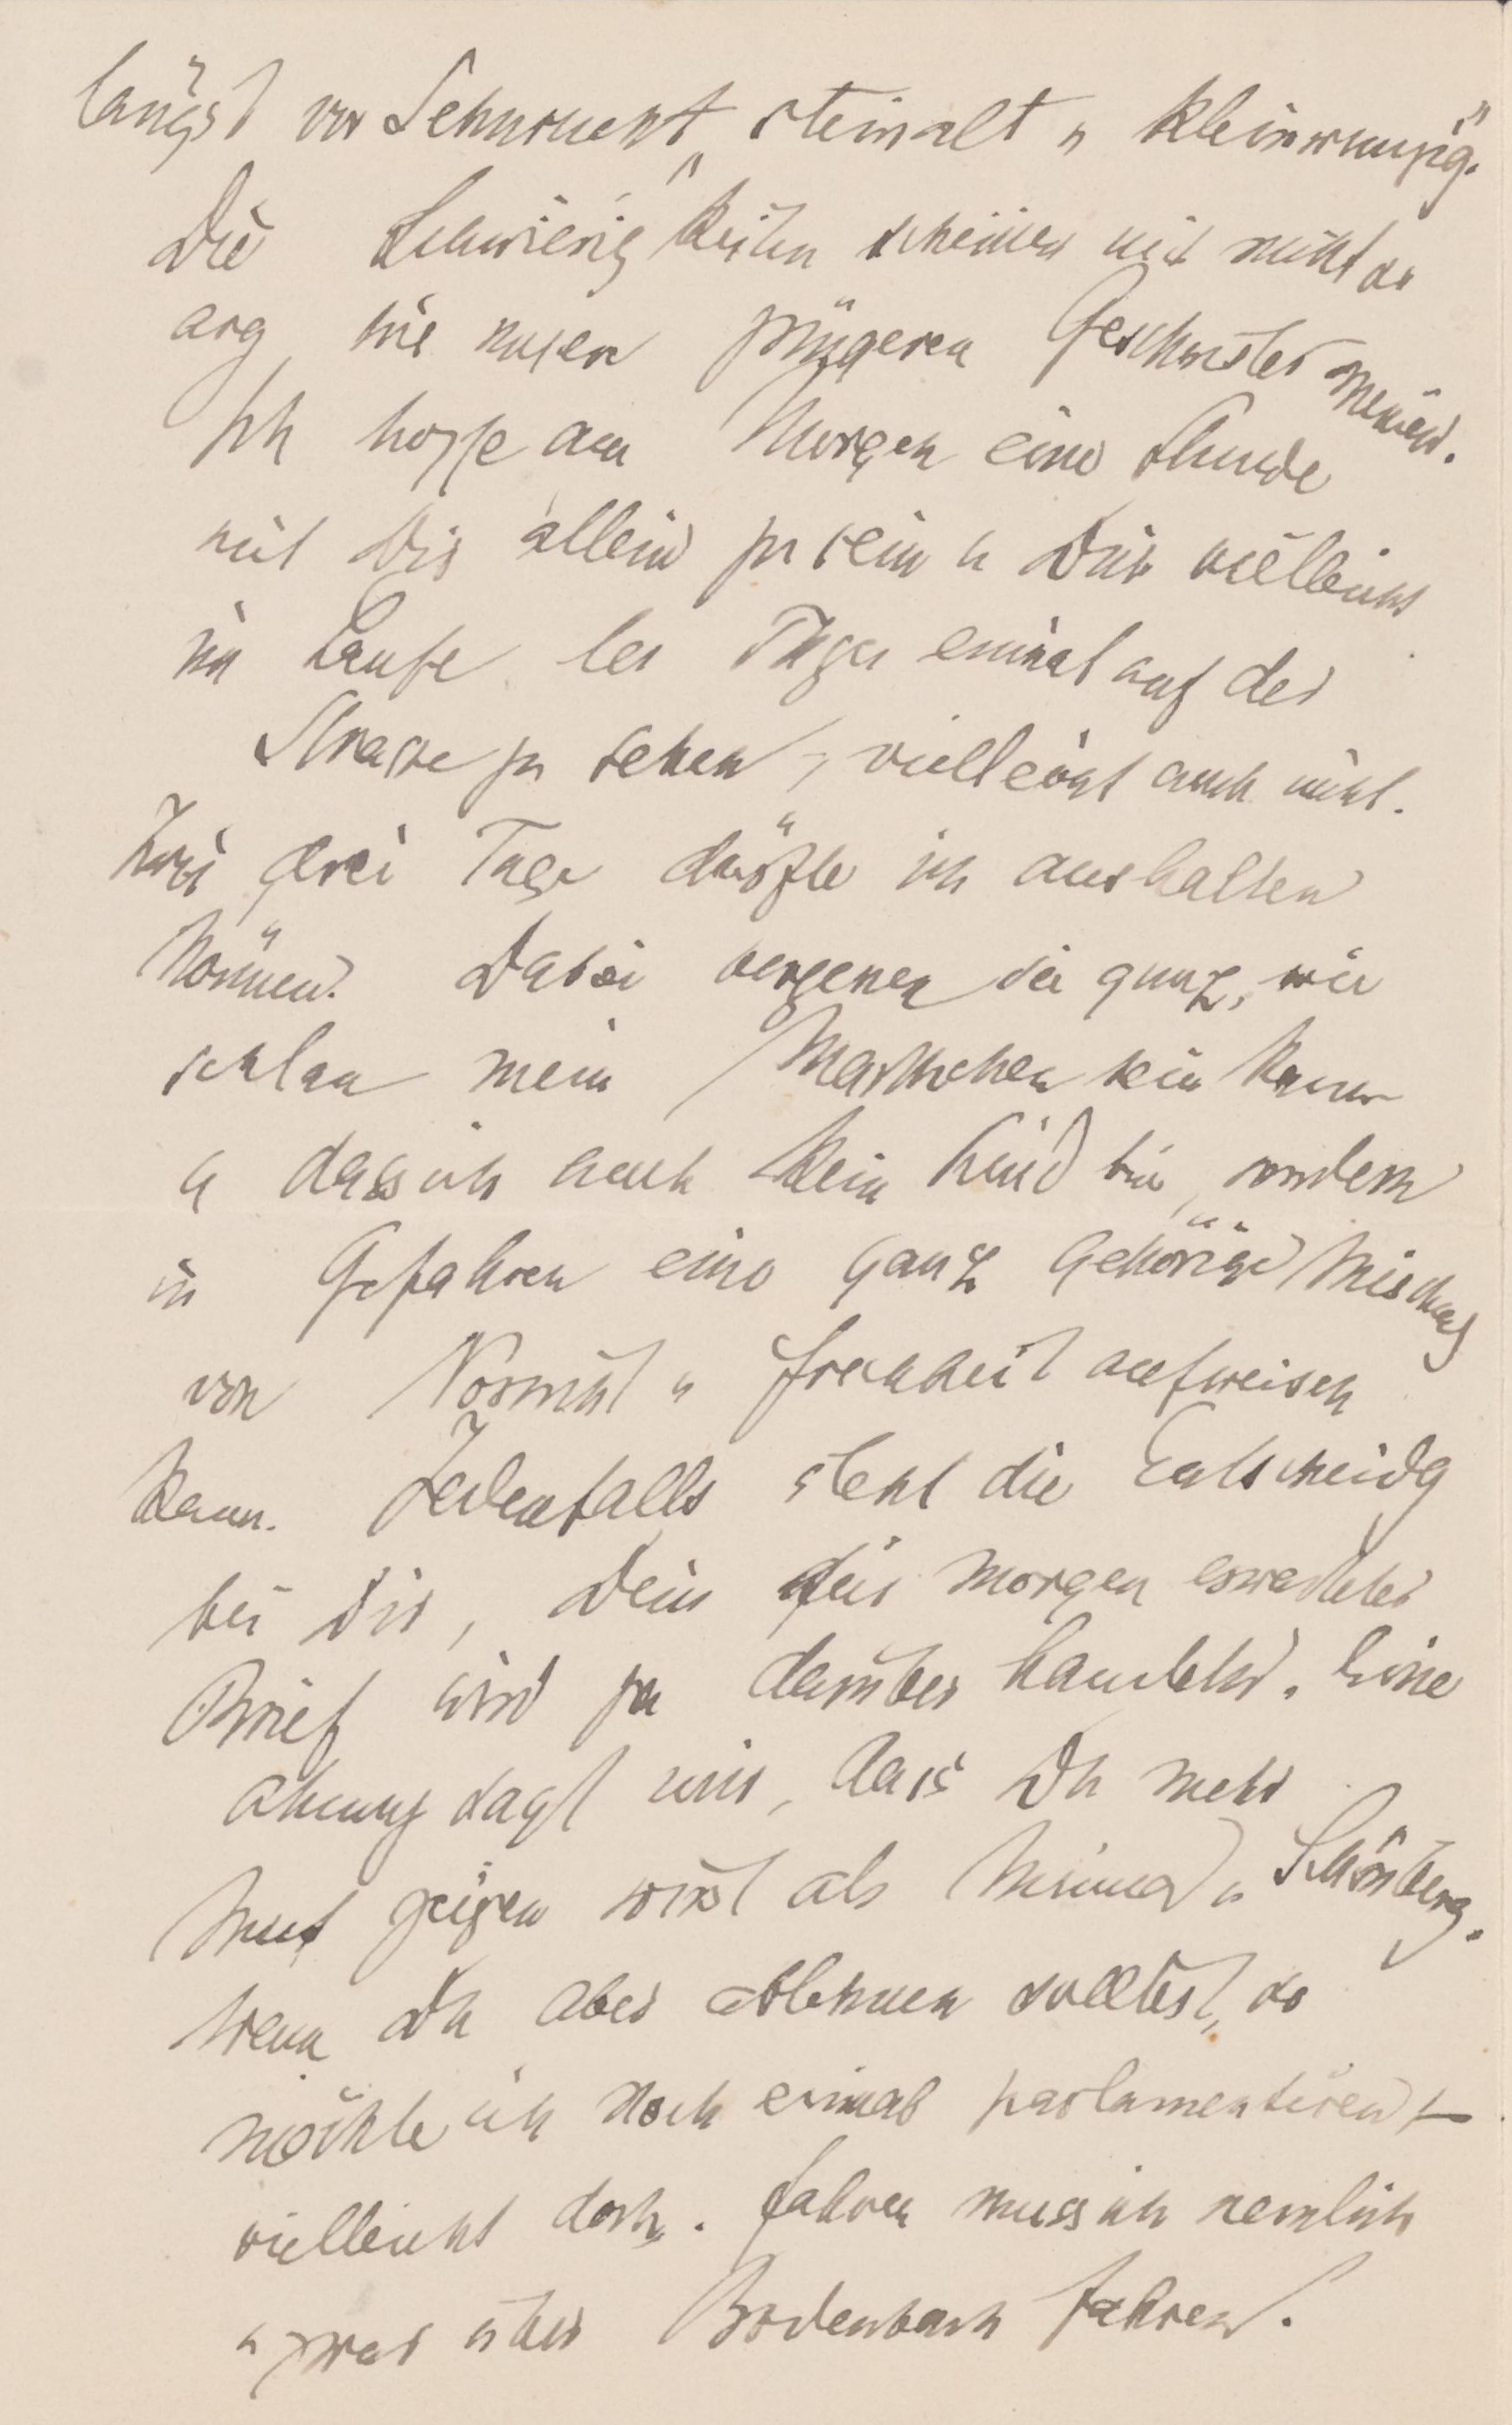 längst vor Sehnsucht „steinalt u kleinwunzig".
Die Schwierigkeiten scheinen mir nicht so
arg, wie unsere jüngeren Geschwister meinen.
Ich hoffe am Morgen eine Stunde
mit Dir allein zu sein u Dir vielleicht
im Laufe des Tages einmal auf der
Strasse zu sehen, vielleicht auch nicht.
Zwei drei Tage dürfte ich aushalten
können. Dabei vergessen sie ganz, wie
schlau mein sein kann
u dass ich auch kein Kind bin, sondern
in Gefahren eine ganz gehörige Mischung
von Vorsicht u Frechheit aufweisen
kann. Jedenfalls steht die Entscheidg
bei Dir, Dein für morgen erwarteter
Brief wird ja darüber handeln. Eine
Ahnung sagt mir, dass Du mehr
Mut zeigen wirst als Minna u Schönberg.
Wenn Du aber ablehnen solltest, so
möchte ich noch einmal parlamentiren –
vielleicht doch. Fahren muss ich nemlich
u zwar über Bodenbach fahren.